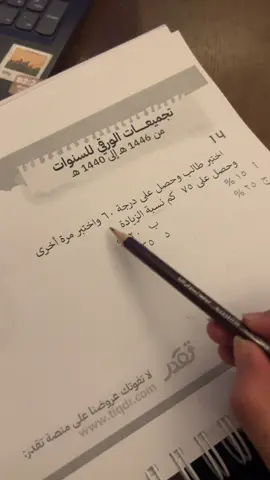 تجميعات الورقي للسنوات
من 1446 هـ إلى 1440 هـ
١٤
اختبر طالب وحصل على درجة ٦٠ واختبر مرة أخرى
وحصل على ٧٥ كم نسبة الزيادة
أ ١٥%
ج ٢٥%
د ٣٥
تقدر
لا تفوتك عروضنا على منصة تقدر:
www.tiqdr.com